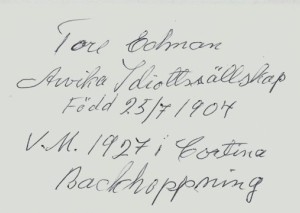 Tore Edman
Arvika Idiottssällskap
Född 25/7 1904
V.M. 1927 i Cortina
Backhoppning